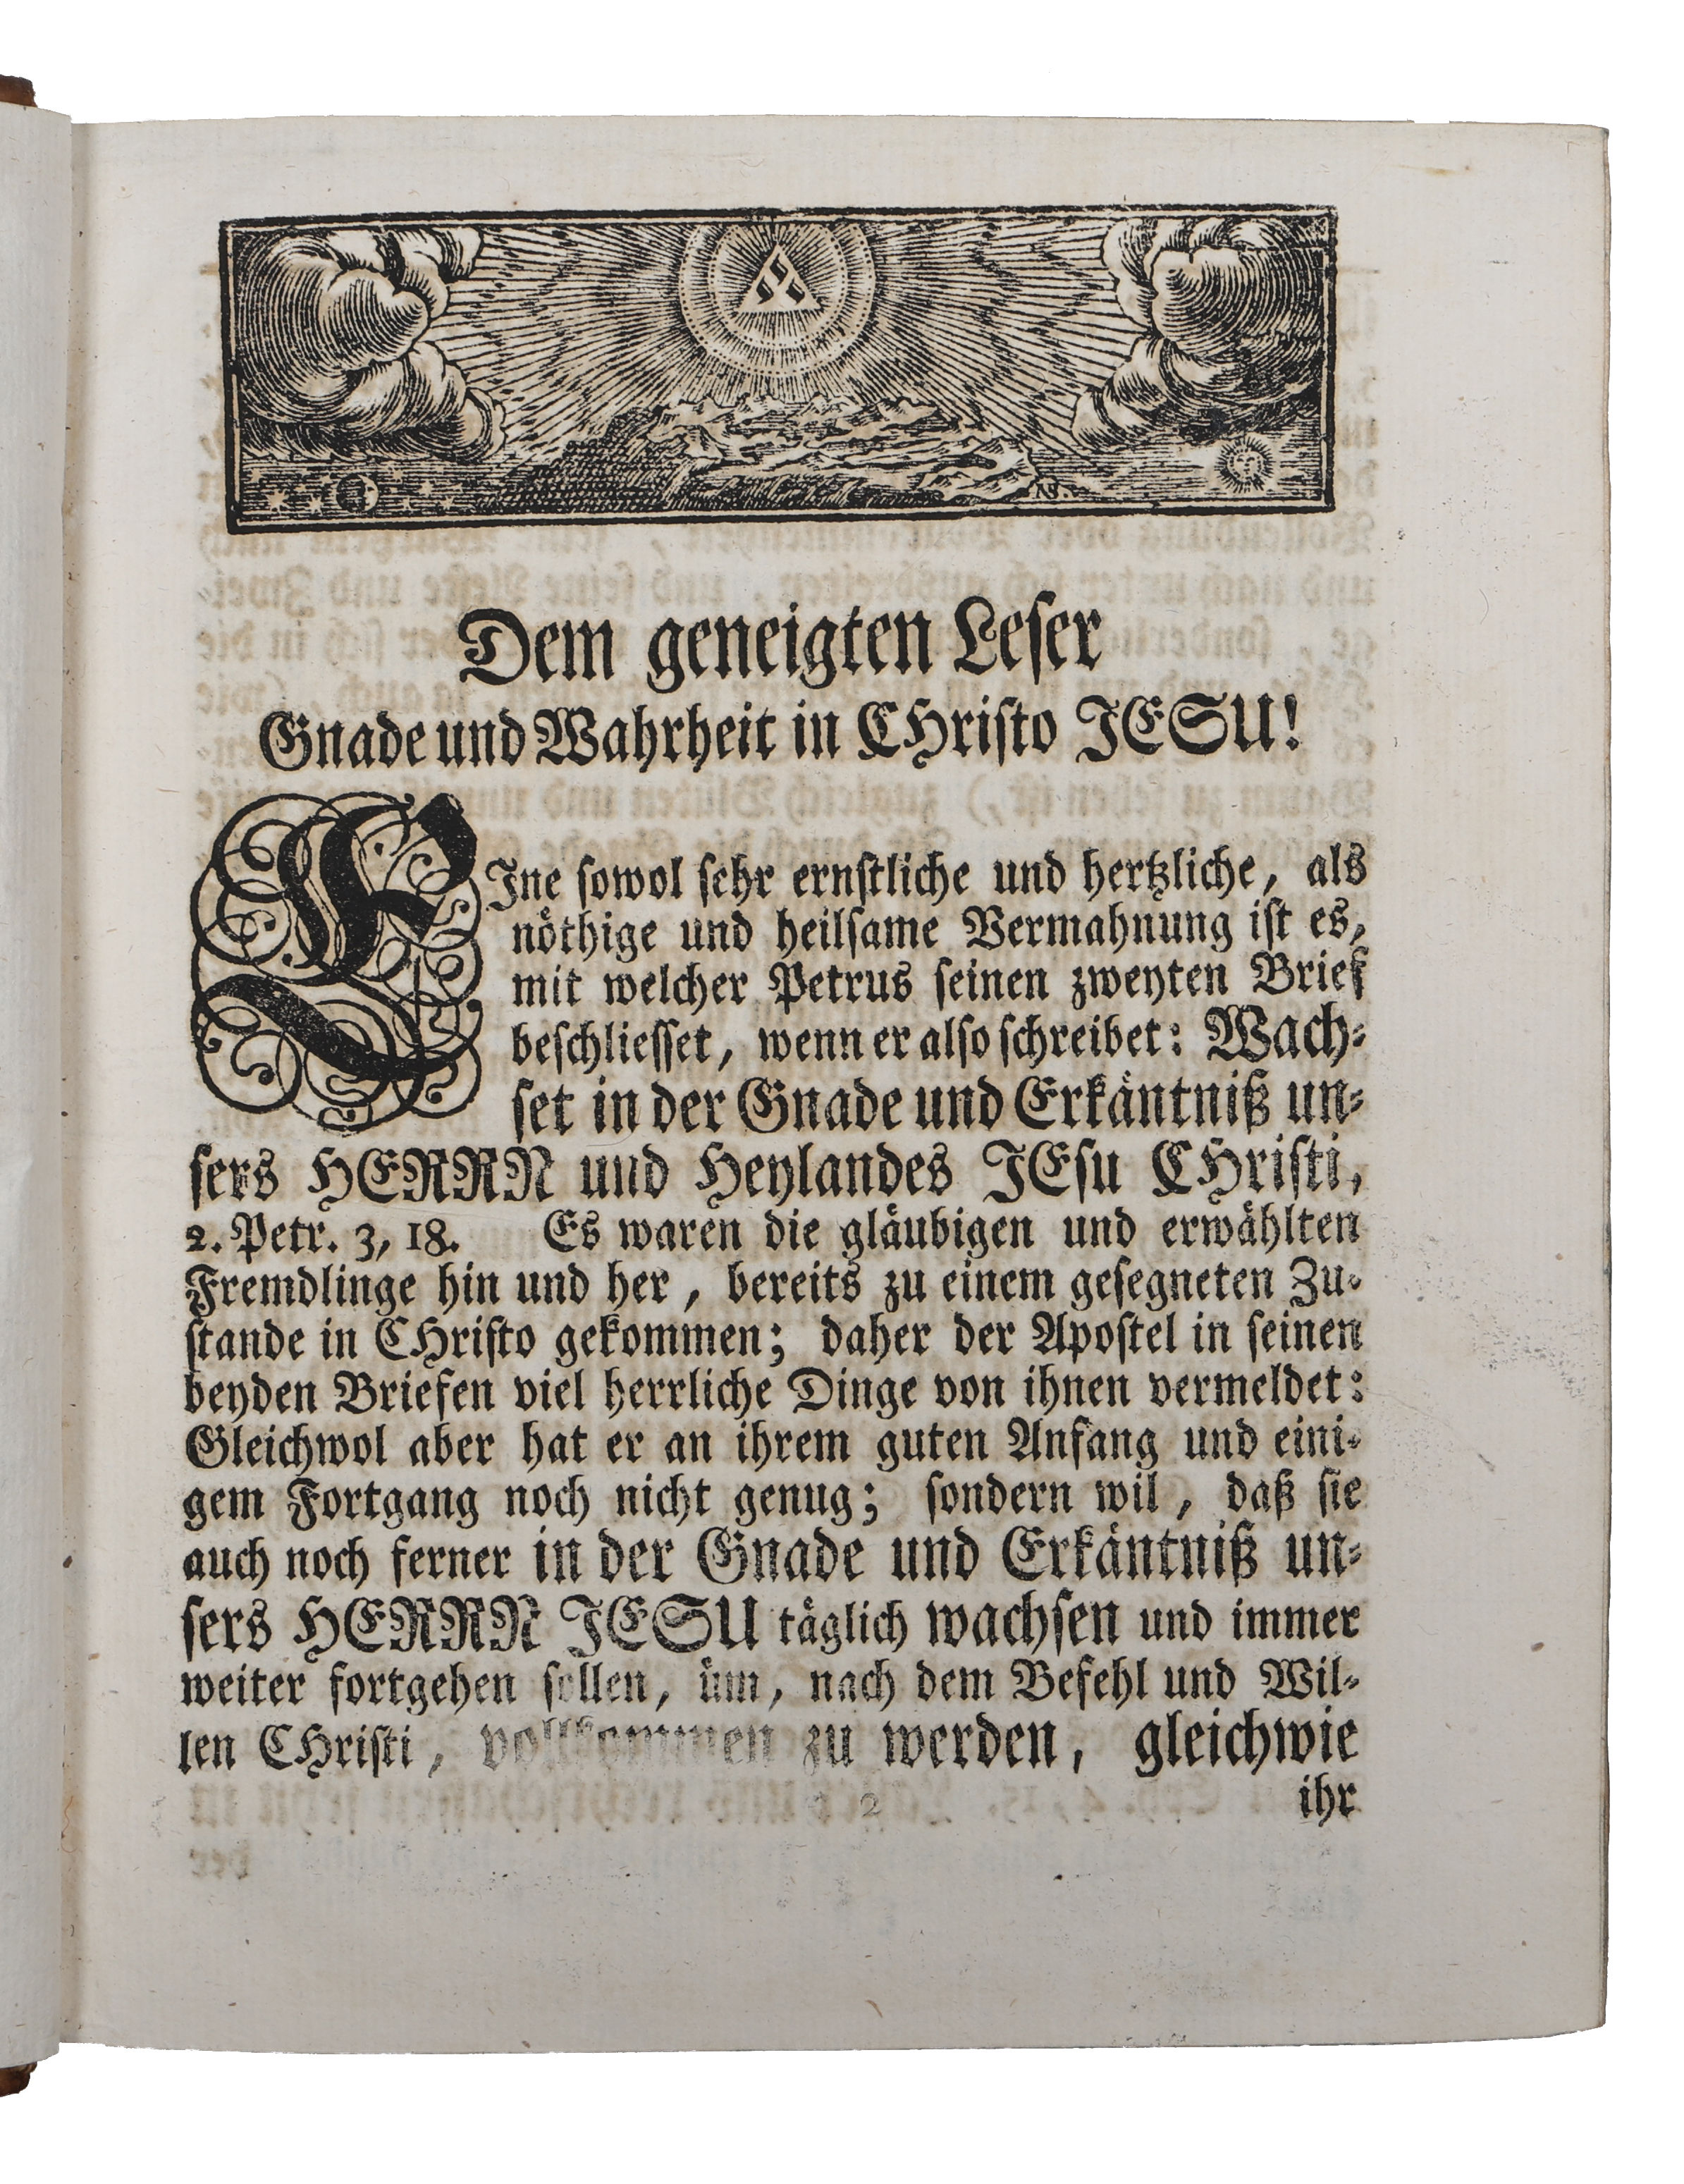 Dem geneigten Leser
Gnade und Wahrheit in CHristo JESU!
EJne sowol sehr ernstliche und hertzliche, als
nöthige und heilsame Vermahnung ist es,
mit welcher Petrus seinen zweyten Brief
beschliesset, wenn er also schreibet: Wach-
set in der Gnade und Erkäntniß un-
sers HERRN und Heylandes JEsu CHristi,
2. Petr. 3, 18. Es waren die gläubigen und erwählten
Fremdlinge hin und her, bereits zu einem gesegneten Zu-
stande in CHristo gekommen; daher der Apostel in seinen
beyden Briefen viel herrliche Dinge von ihnen vermeldet:
Gleichwol aber hat er an ihrem guten Anfang und eini-
gem Fortgang noch nicht genug; sondern wil, daß sie
auch noch ferner in der Gnade und Erkäntniß un-
sers HERRN JESU täglich wachsen und immer
weiter fortgehen sollen, üm, nach dem Befehl und Wil-
len CHristi, vollkommen zu werden, gleichwie
2 ihr